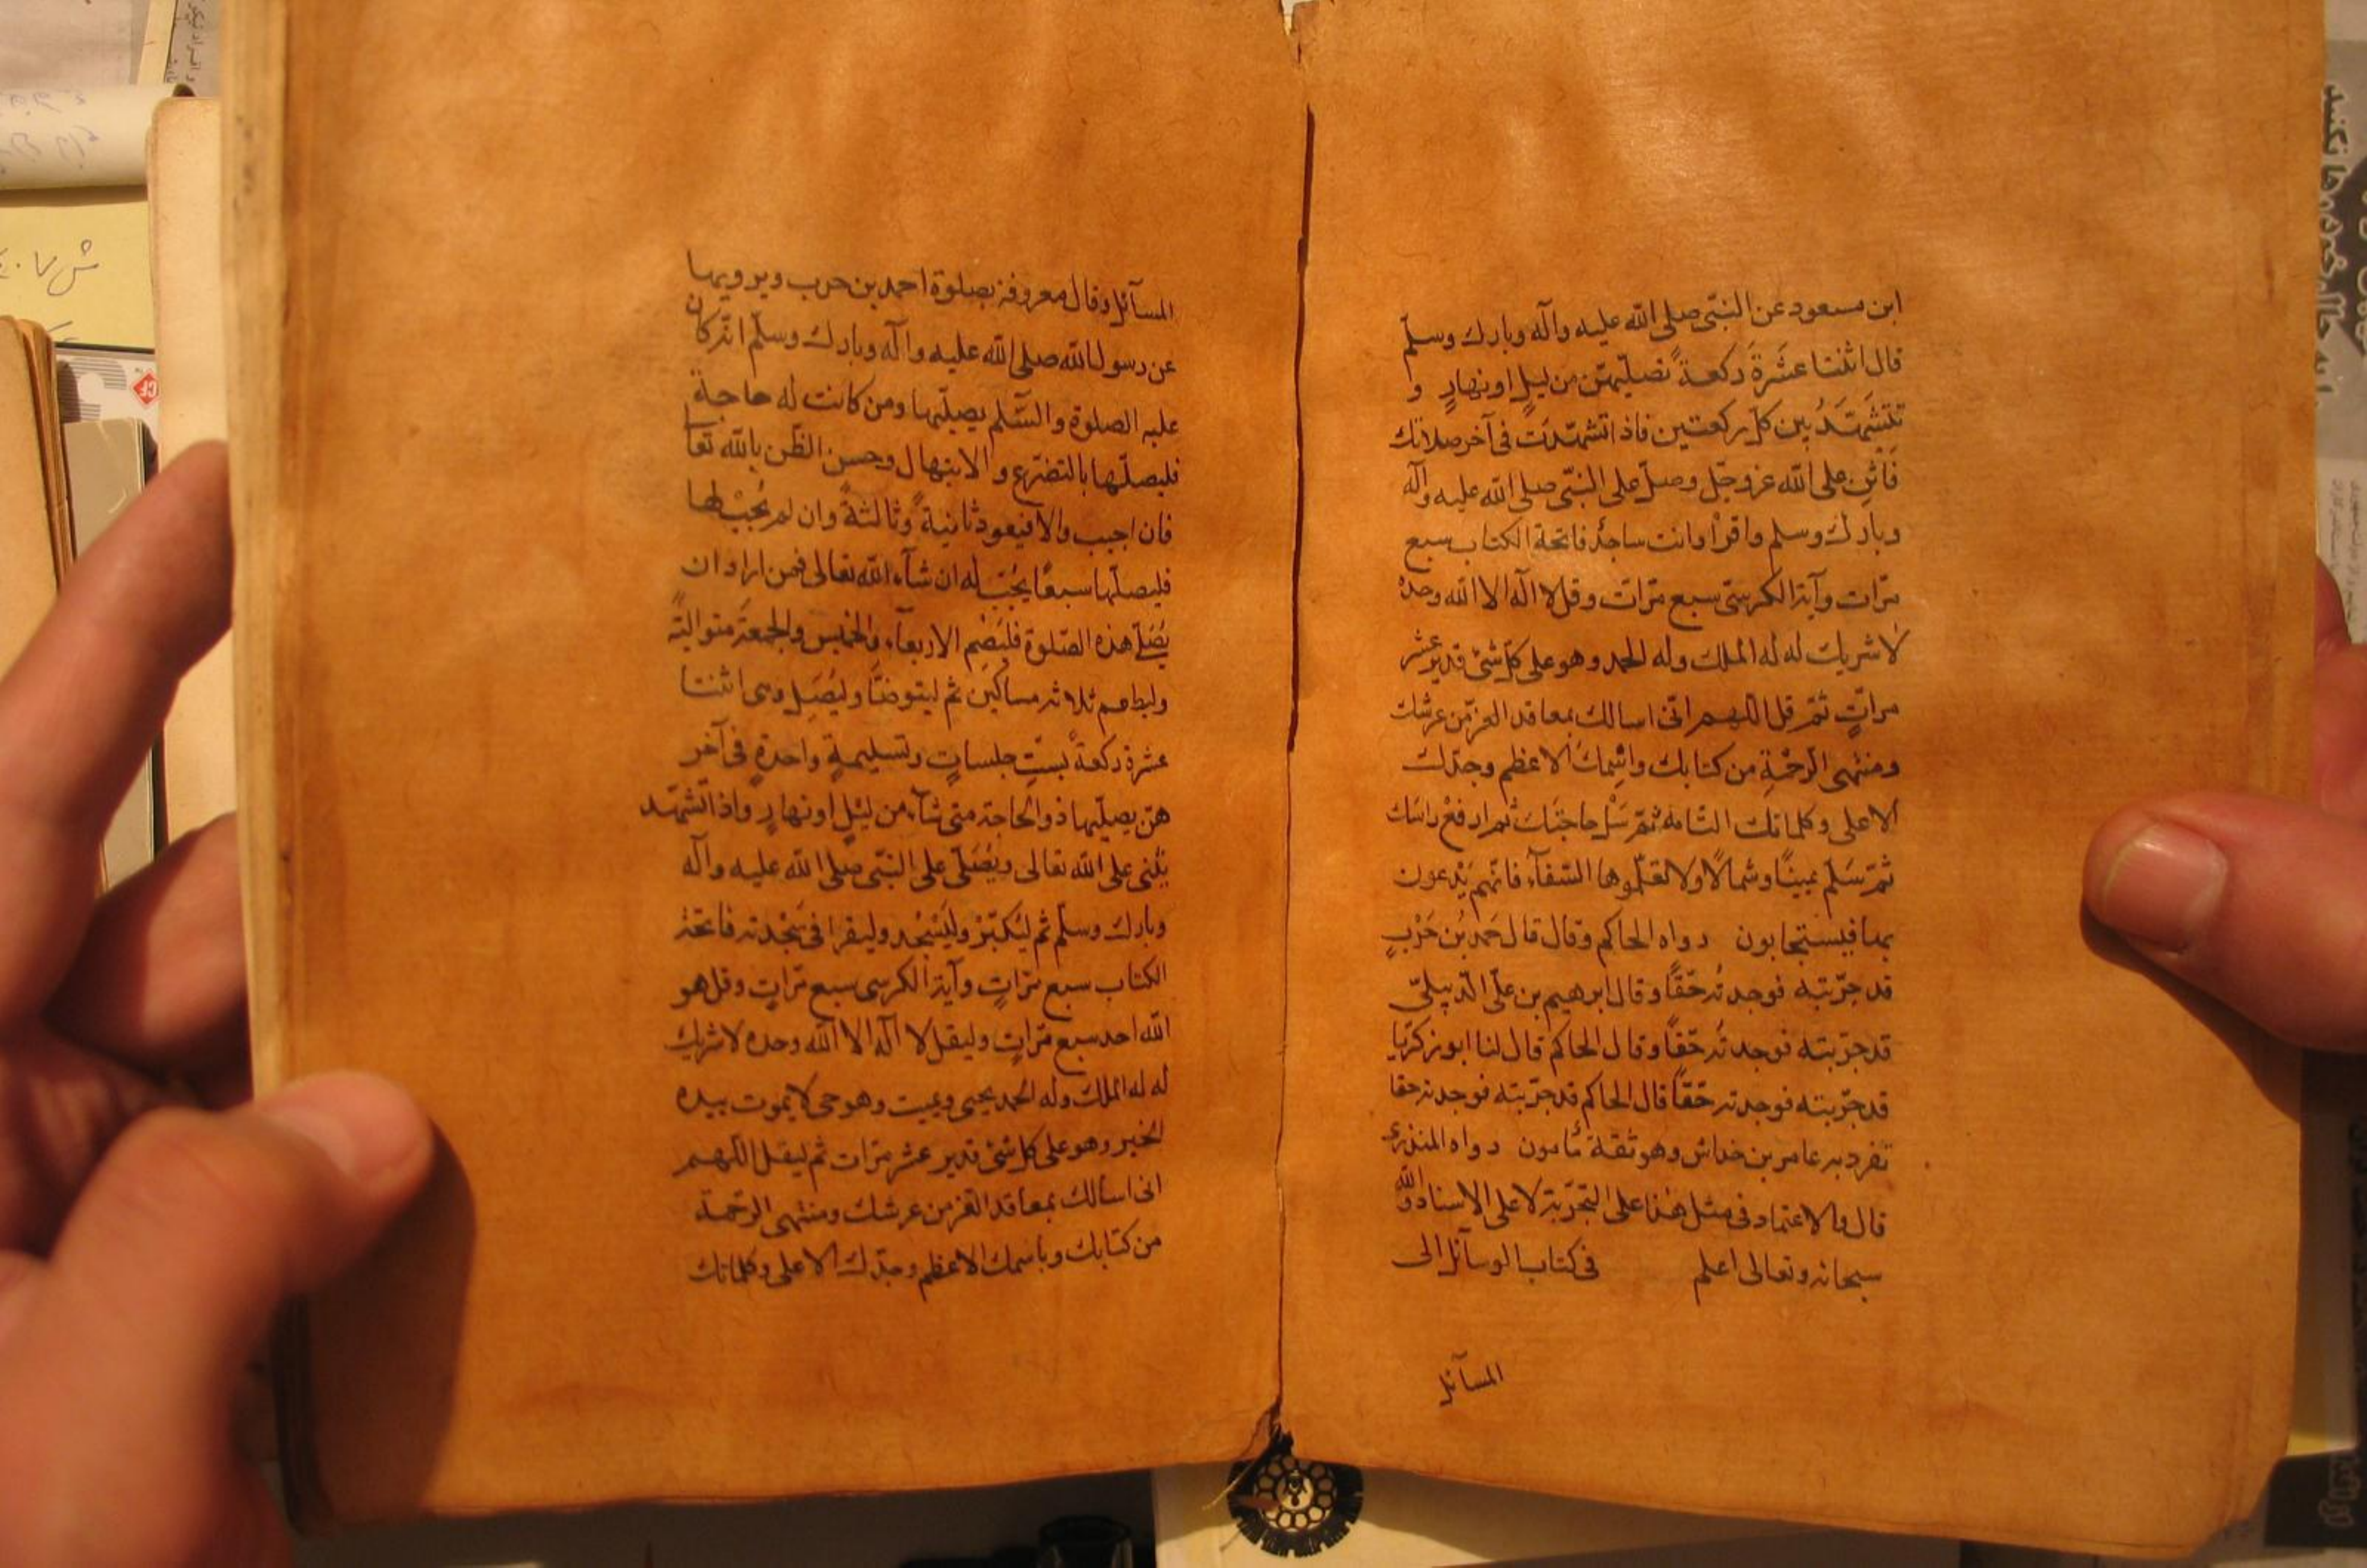 ابن مسعود عن النبّي صلى الله عليه وآله وبارك وسلّم
قال اثنتا عَشَرةَ ركعةً تصليّهنّ من ليلٍ او نهارٍ و
تَتَشَهّدُ بين كلّ ركعتين فاذا تشهّدتَ في آخر صلاتك
فَاَثنِ على الله عزوجّل وصلّ على النبّي صلى الله عليه وآله
وبارك وسلم واقرأ وانت ساجدٌ فاتحة الكتاب سبع
مرّات وآية الكرسّي سبع مرّات وقل لا اله الا الله وحده
لا شريك له له الملك وله الحمد وهو على كلّ شئ قدير عشر
مراتٍ ثمّ قل اللهم انّى اسالك بمعاقد العزّ من عرشك
ومنتهى الرّحْمَةِ من كتابك واسْمِك الاعظم وجدّك
الاعلى وكلماتك التّامه ثمّ سَلْ حاجتَك ثم ارفعْ راسَك
ثمّ سَلّم يمينًا وشمالًا ولا تعَلّموها السّفهآء فانّهم يَدْعون
بها فيستجابون رواه الحاكم وقال قال حَمد بُن حَرْبٍ
قد جرّبتُه فوجدتُه حَقًّا وقال ابرهيم بن علّى الدّيبلىّ
قد جرّبته فوجدتُه حَقًّا وقال الحاكم قال لنا ابو زكرّيا
قد جرّبته فوجدته حَقًّا قال الحاكم قد جرّبته فوجدته حقا
تفرد به عامر بن خداش وهو ثقة مأمون رواه المنذرى
قال والاعتماد في مثل هذا على التجرّبة لا على الاسناد والله
سبحانه وتعالى اعلم في كتاب الوسآئل الى
المسآئل
المسآئل وقال معروفة بصلوة احمد بن حرب ويرويها
عن رسول الله صلى الله عليه وآله وبارك وسلّم انّه كان
عليه الصلوة والسّلم يصلّيها ومن كانت له حاجة
فليصلّها بالتضرّع والابتهال وحسن الظّن بالله تعالى
فان اجيب والّا فيعود ثانيةً وثالثةً وان لم يُجَبْ لها
فليصلّها سبعًا يُجَبْ له ان شآء الله تعالى فمن اراد ان
يُصَلّى هذه الصّلوة فليَصُم الاربعآء والخميس والجمعة متواليةً
وليطعم ثلاثه مساكين ثم ليتوضّأ وليُصَلِ وهى اثنتا
عشرة ركعةً بستّ جلساتٍ وتسليمةٍ واحدةٍ في آخر
هنّ يصليّها ذو الحاجة متى شآء من ليْلٍ او نهارٍ واذا تشهّد
يُثنى على الله تعالى ويُصَلّى على النبّي صلى الله عليه وآله
وبارك وسلّم ثم ليُكبّرْ وليَسْجُد وليقرا في سَجْدته فاتحة
الكتاب سبع مرّاتٍ وآية الكرسى سبع مرّاتٍ وقل هو
الله احد سبع مرّاتٍ وليقل لا اله الا الله وحده لا شريك
له له الملك وله الحمد يحيى ويميت وهو حى لا يموت بيده
الخير وهو على كل شئ قدير عشر مرّات ثم ليقل اللهم
انى اسالك بمعاقد العّز من عرشك ومنتهى الرّحمة
من كتابك وباسمك الاعظم وجدّك الاعلى وكلماتك